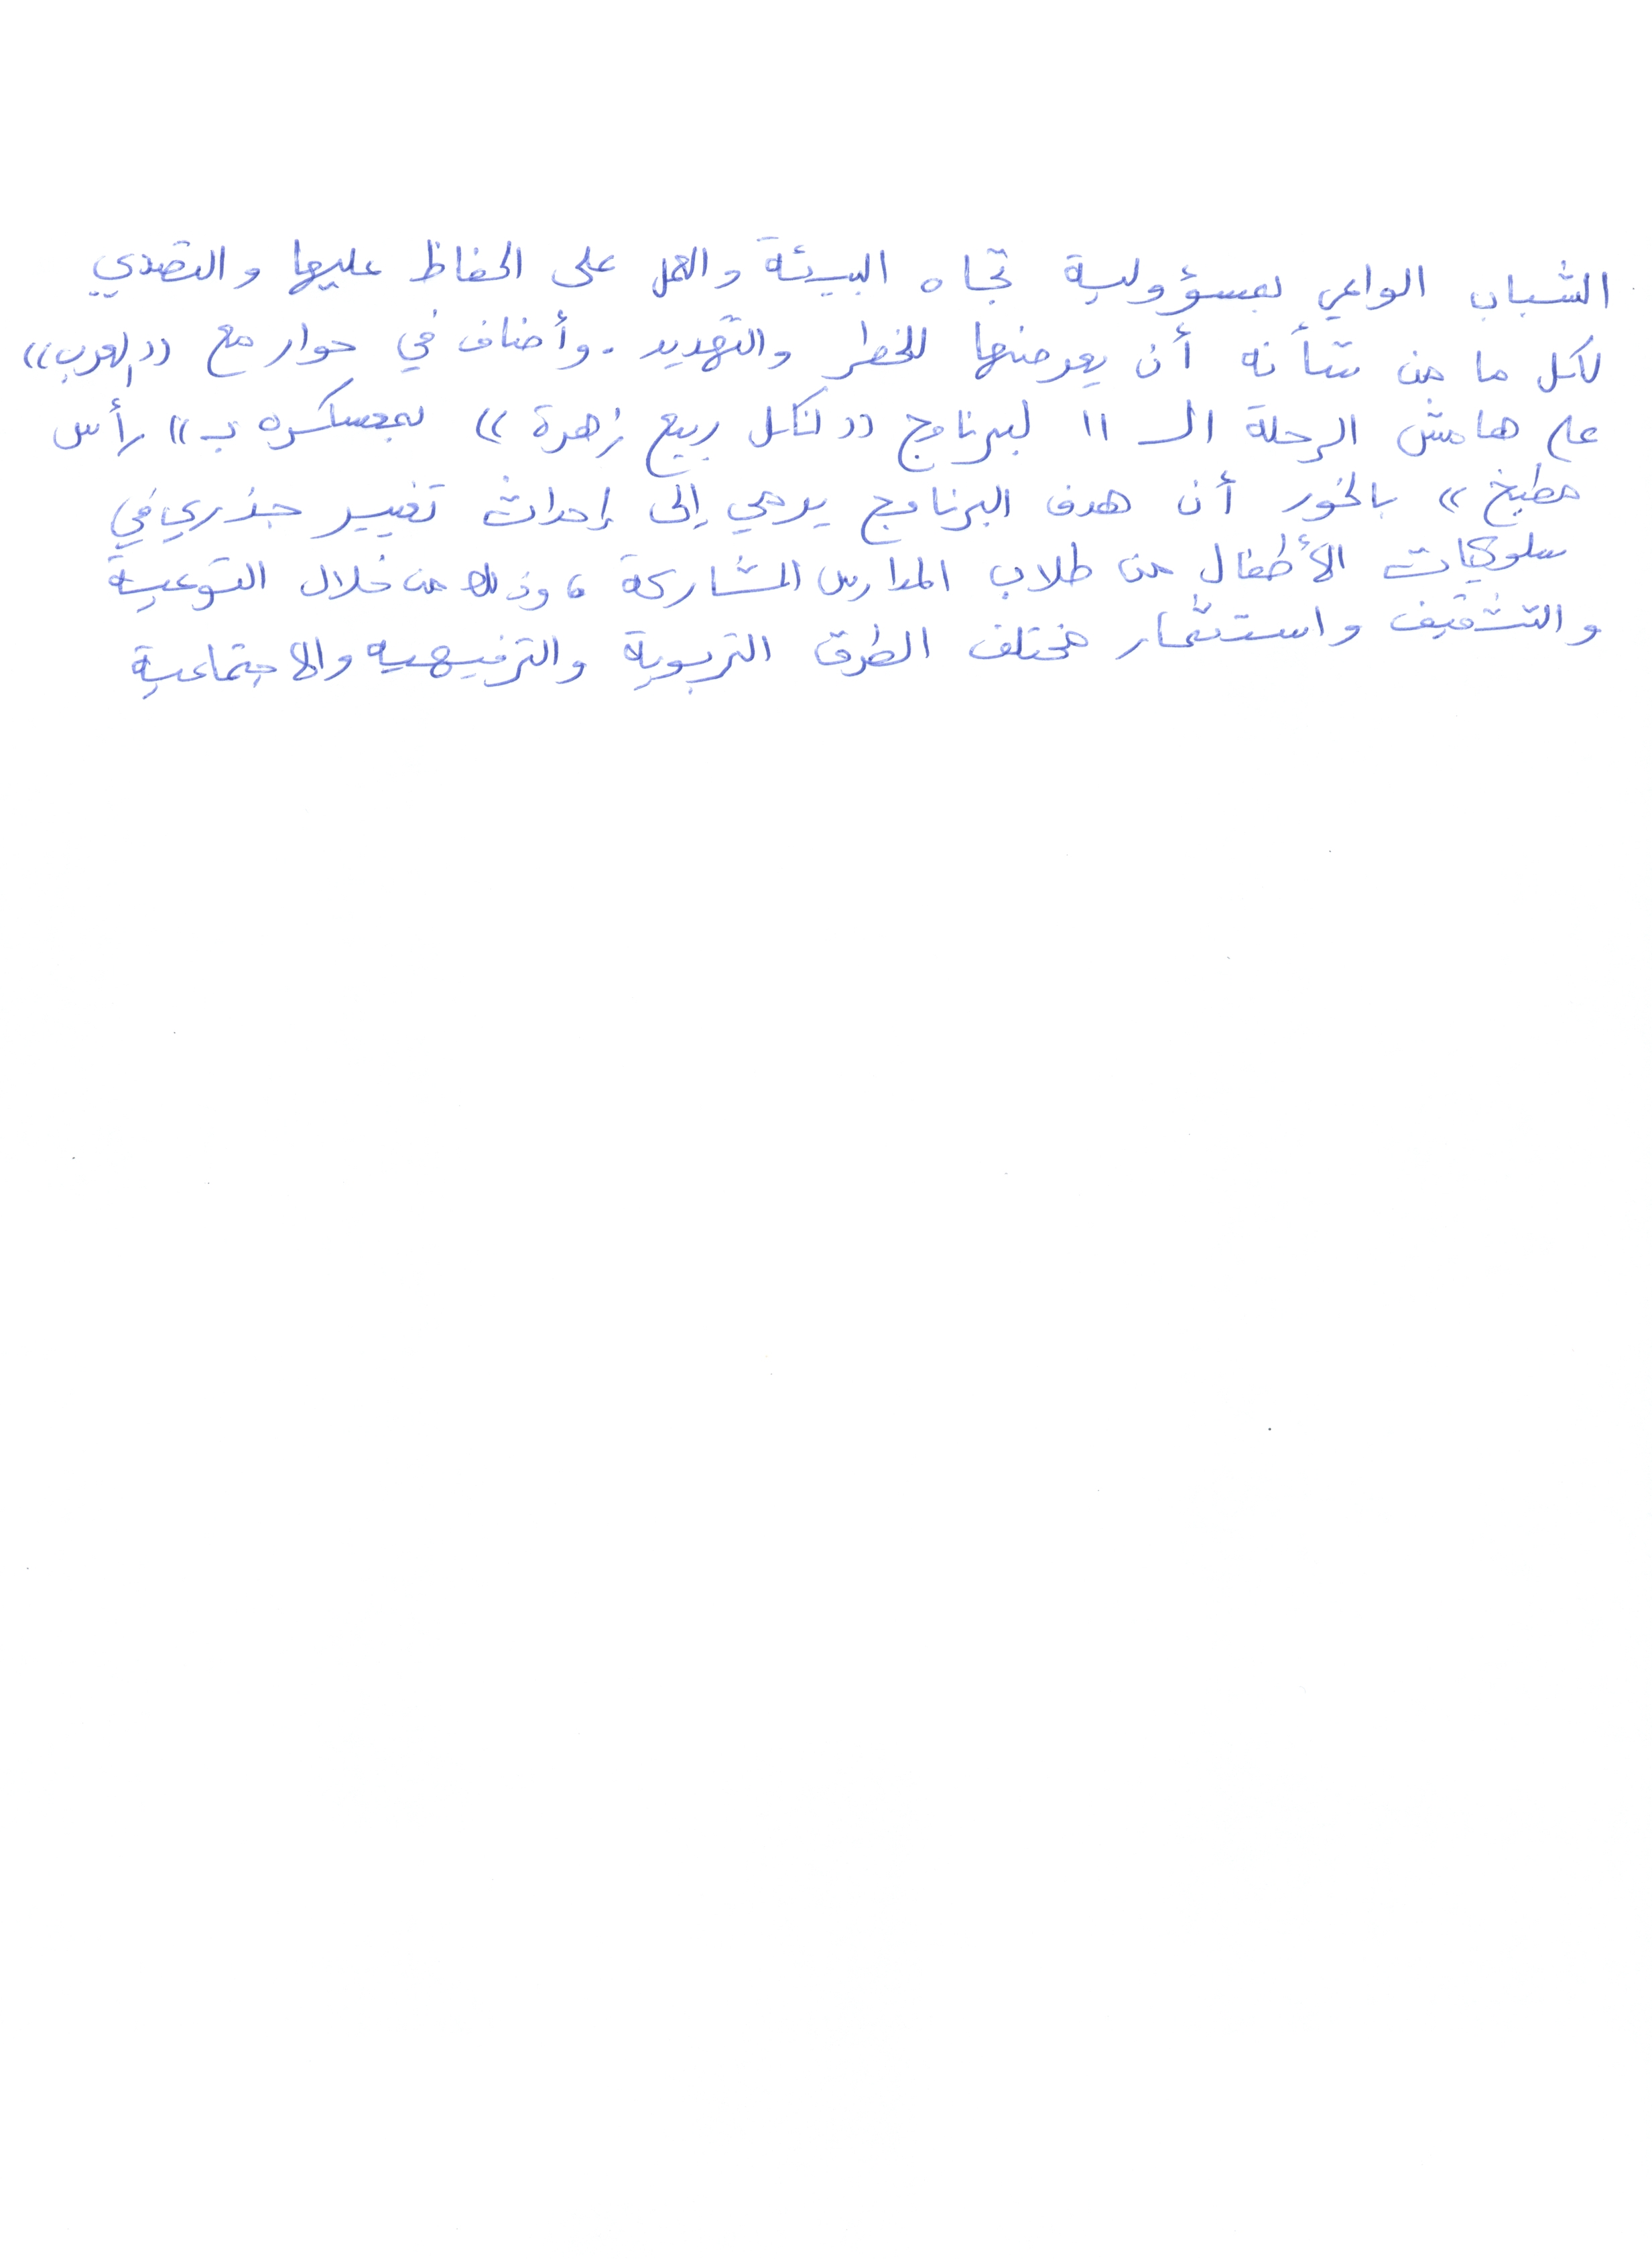 الشباب الواعي بمسؤولية تجاه البيئة والعمل على الحفاظ عليها والتصدي
لكل ما من شأنه أن يعرضها للخطر والتهديد . وأضاف في حوار مع «العرب»
على هامش الرحلة الـ 11 لبرنامج «لكل ربيع زهرة» بمعسكره بـ» رأس
مطبخ» بالخور أن هدف البرنامج يرمي إلى إحداث تغيير جذري في
سلوكيات الأطفال من طلاب المدارس المشاركة ، وذلك من خلال التوعية
والتثقيف واستثمار مختلف الطرق التربوية والترفيهيه والاجتماعية